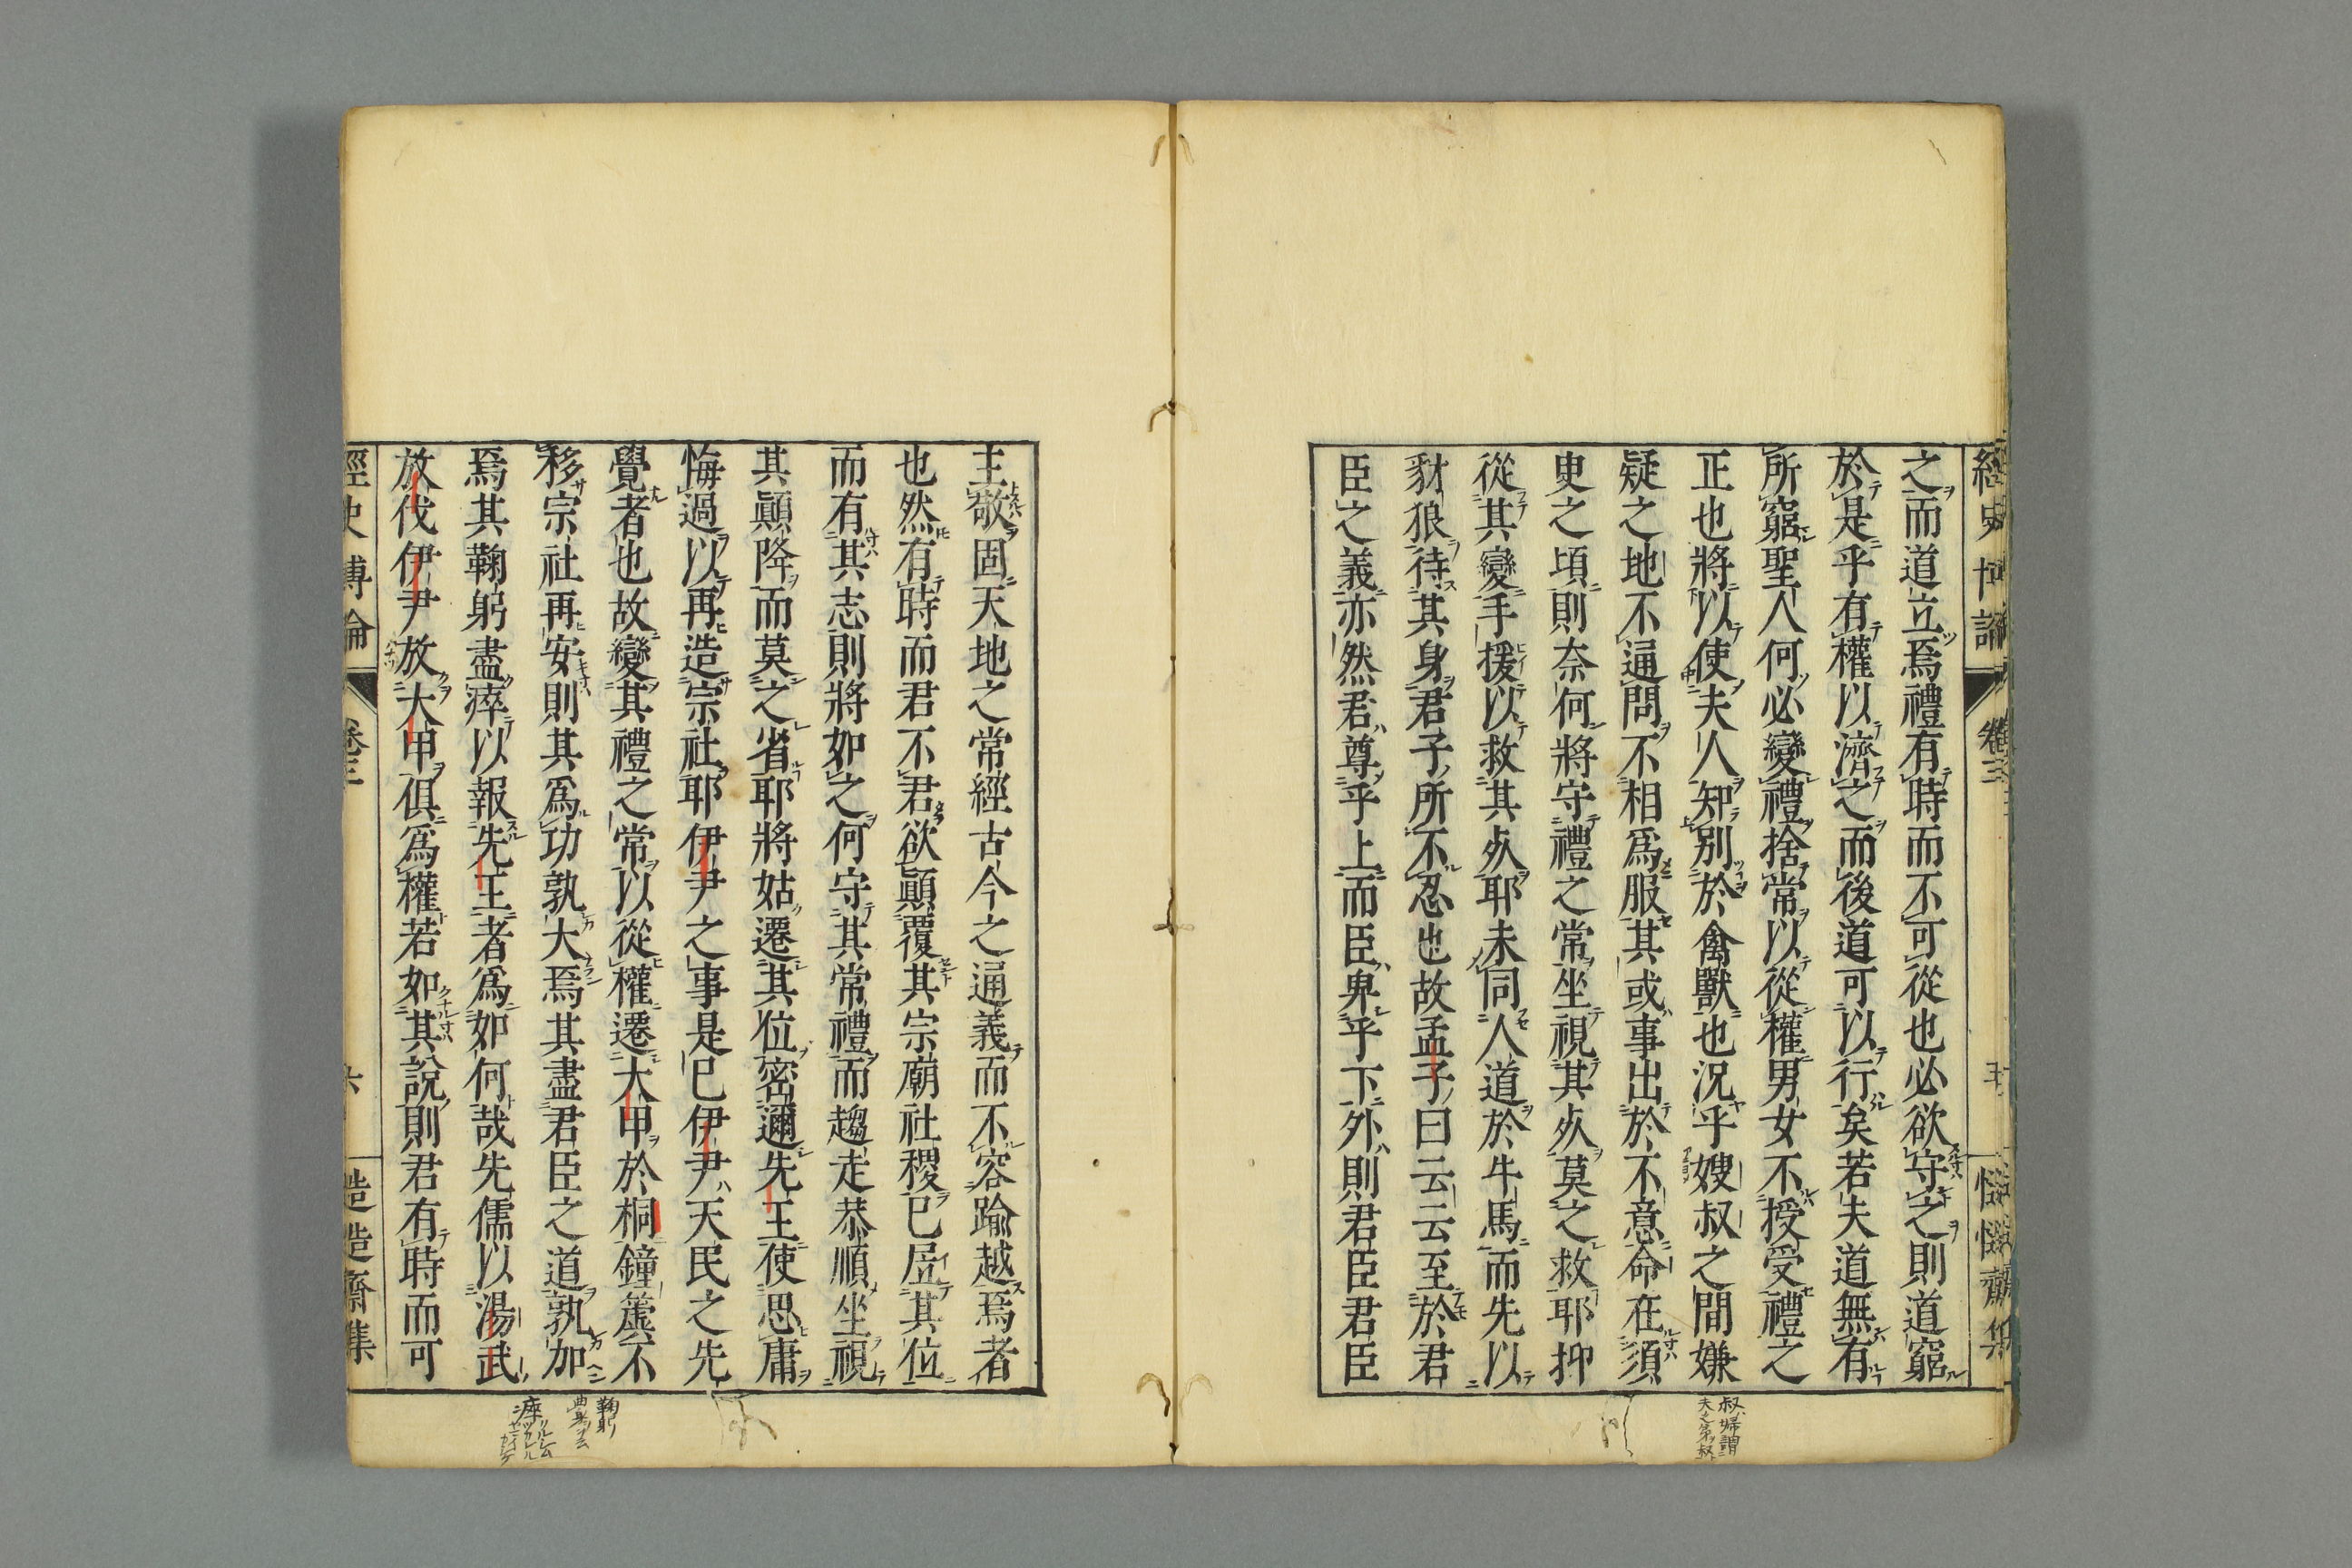 之而道立焉禮有時而不可從也必欲守之則道窮
於是乎有權以濟之而後道可以行矣若夫道無有
所窮聖人何必變禮捨常以從權男女不授受禮之
正也將以使夫人知別於禽獸也況乎嫂叔之間嫌
疑之地不通問不相爲服其或事出於不意命在須
臾之頃則奈何將守禮之常坐視其㱕莫之救耶抑
從其變手援以救其㱕耶未同人道於牛馬而先以
豺狼待其身君子所不忍也故孟子曰云云至於君
臣之義亦然君尊乎上而臣卑乎下外則君臣君臣
叔婦謂
夫之弟叔
王敬固天地之常經古今之通義而不容踰越焉者
也然有時而君不君欲顚覆其宗廟社稷已居其位
而有其志則將如之何守其常禮而趨走恭順坐視
其顚隮而莫之省耶將姑遷其位密邇先王使思庸
悔過以再造宗社耶伊尹之事是已伊尹天民之先
覺者也故變其禮之常以從權遷大甲於桐鐘簴不
移宗社再安則其爲功孰大焉其盡君臣之道孰加
焉其鞠躬盡瘁以報先王者爲如何哉先儒以湯武
放伐伊尹放大甲俱爲權若如其說則君有時而可
經史博論
卷三
六
慥慥齋集
鞠躬
瘁